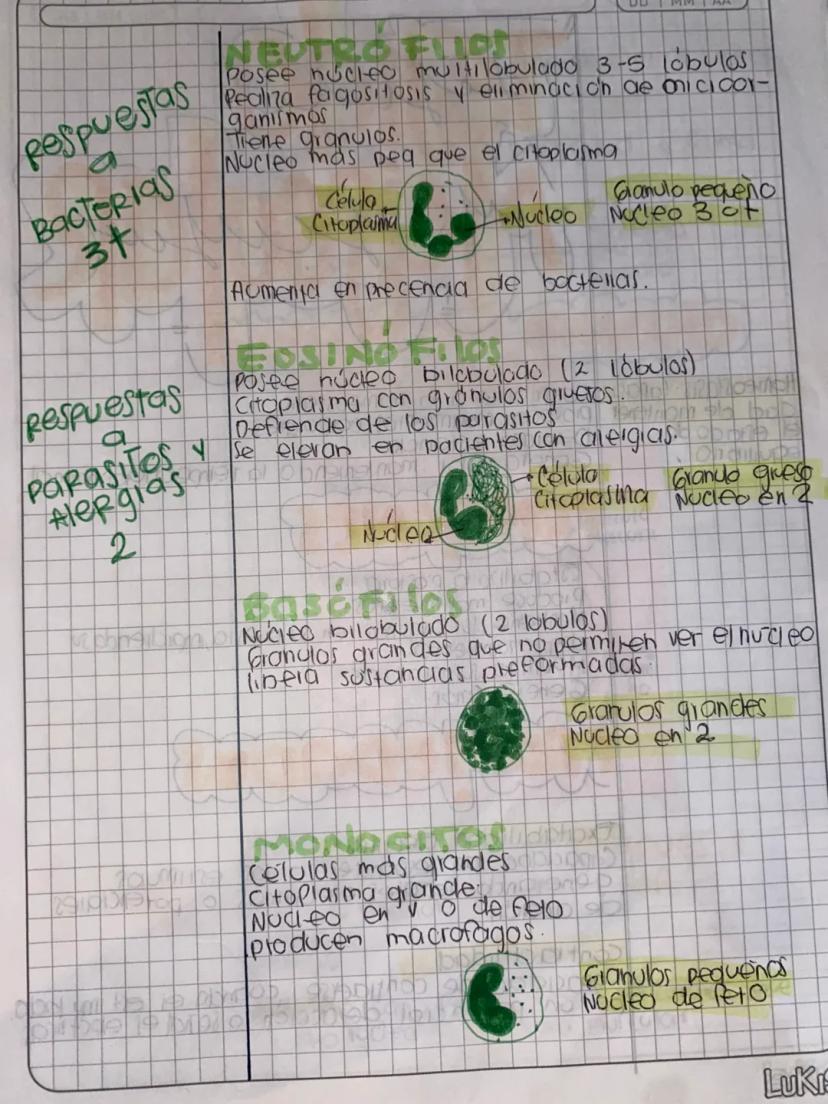 DD MM AA
NEUTRÓFILOS
Posee núcleo multilobulado 3-5 lóbulos
Realiza fagositosis y eliminación de microor-
ganismos
Tiene granulos.
Nucleo más peq que el citoplasma
RESPUESTAS
a
BACTERIAS
3+
Célula
Citoplasma
Núcleo
Granulo pequeño
Nucleo 3 o +
Aumenta en precencia de bacterias.
EOSINÓFILOS
Posee núcleo bilobulado (2 lóbulos)
Citoplasma con gránulos gruesos.
Defiende de los parasitos
Se elevan en pacientes con alergias.
RESPUESTAS
a
PARASITOS y
Alergias
2
Célula
Citoplasma
Granulo grueso
Nucleo en 2
Núcleo
BASÓFILOS
Núcleo bilobulado (2 lobulos)
Granulos grandes que no permiten ver el nucleo
libera sustancias preformadas.
Granulos grandes
Nucleo en 2
MONOCITOS
Células más grandes
Citoplasma grande
Nucleo en v o de feto
producen macrofagos.
Granulos pequeños
Nucleo de feto